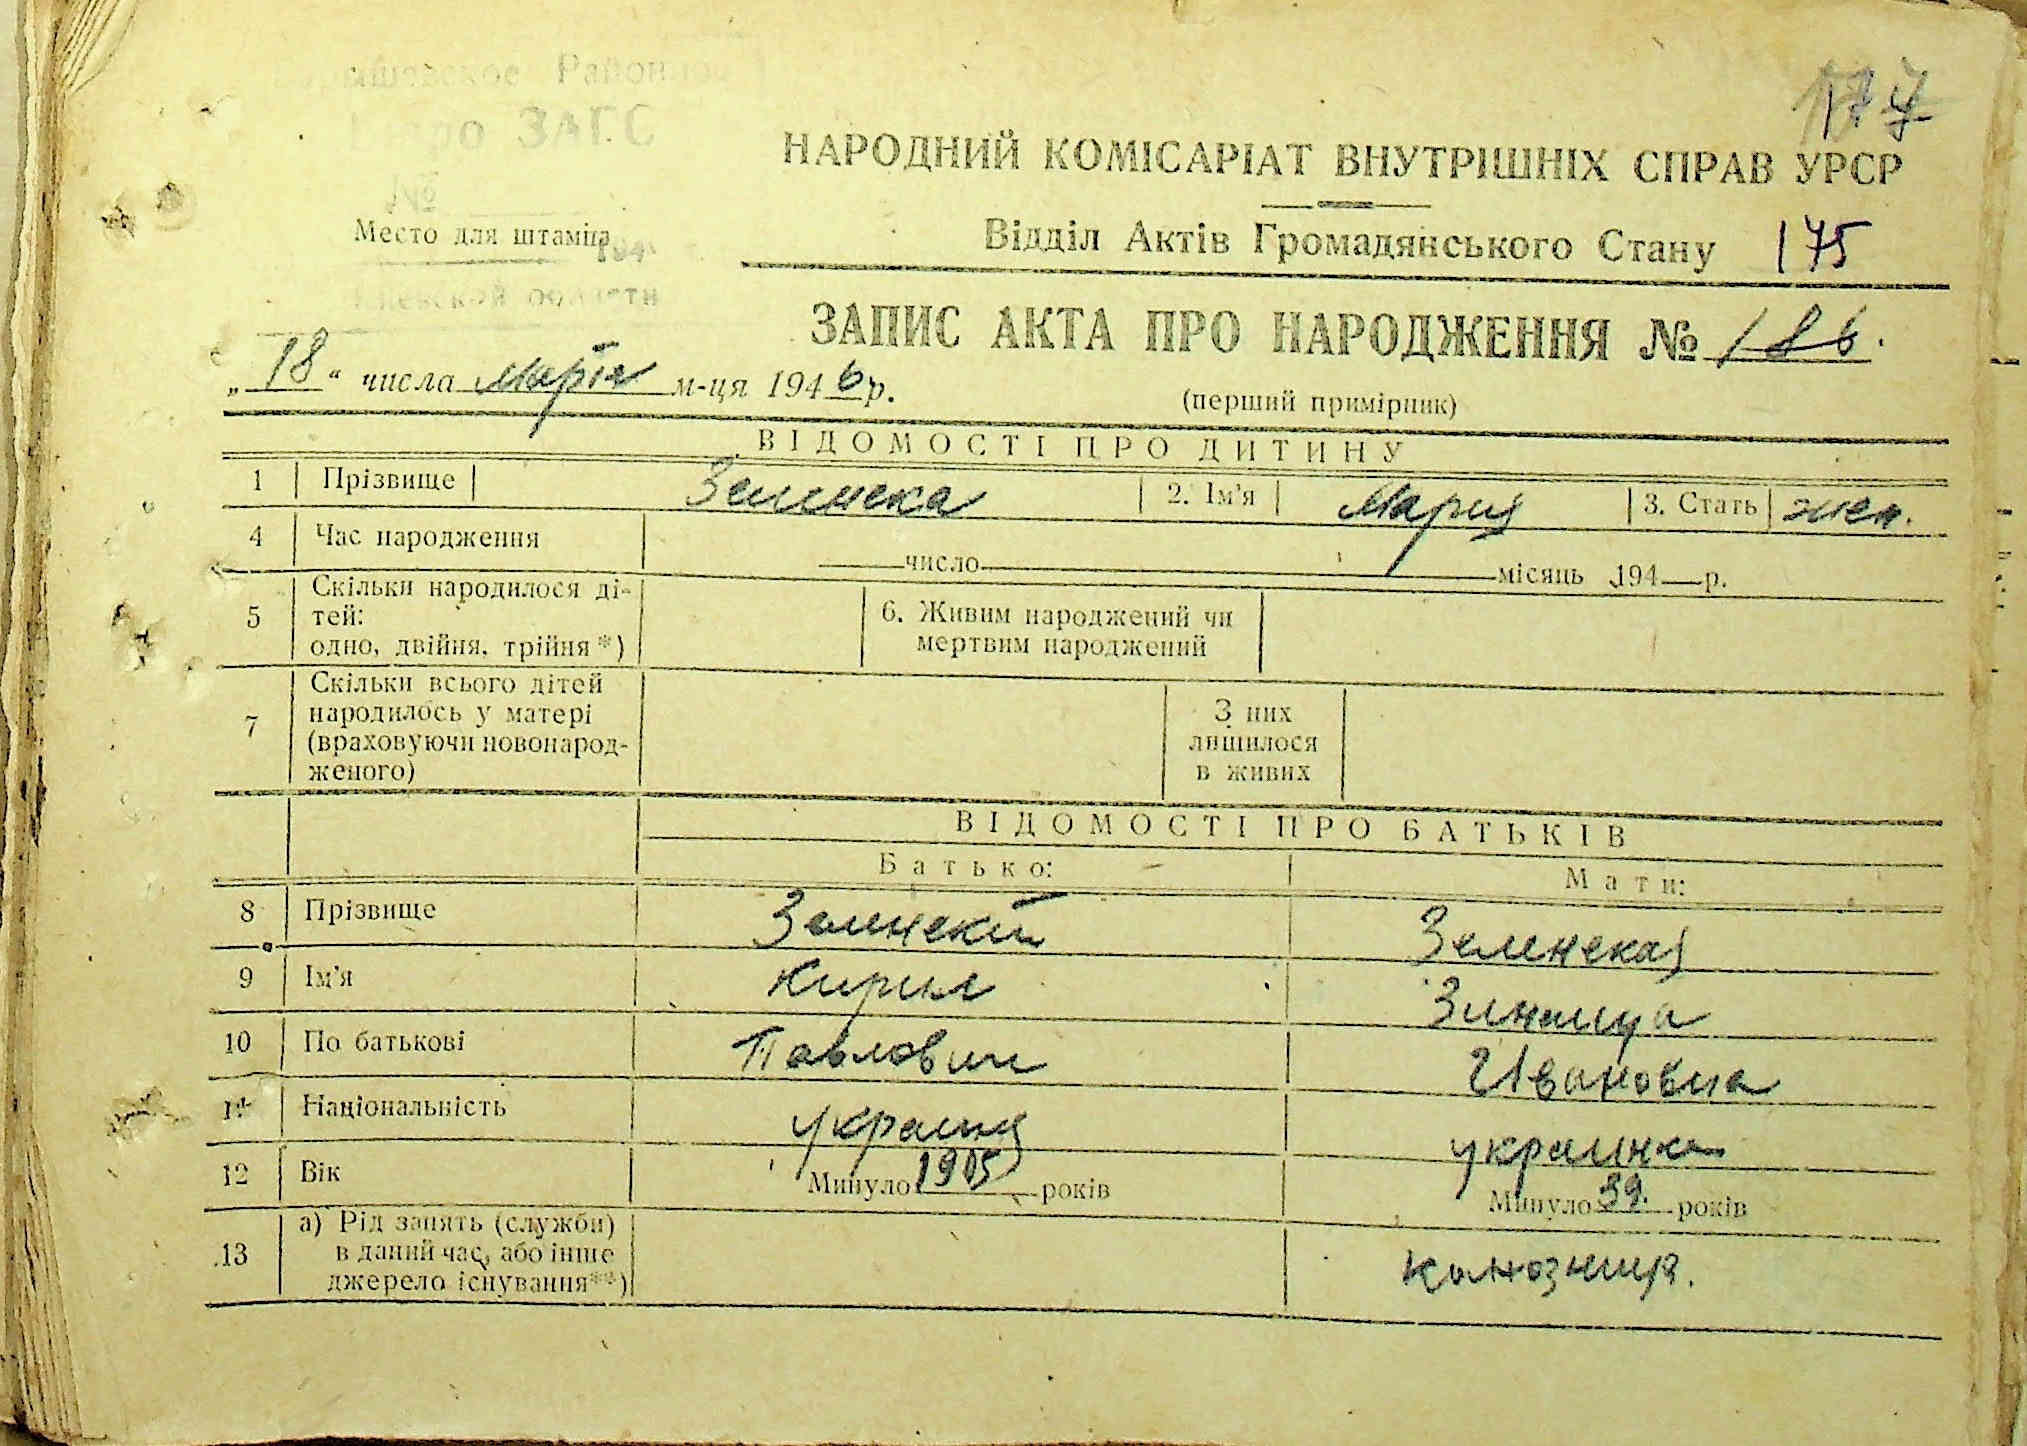 Районное
Бюро ЗАГС
№
Место для штампа
194
Киевской области
177
НАРОДНИЙ КОМІСАРІАТ ВНУТРІШНІХ СПРАВ УРСР
Відділ Актів Громадянського Стану 175
ЗАПИС АКТА ПРО НАРОДЖЕННЯ № 186.
„18“ числа марта м-ця 1946 р.
(перший примірник)
ВІДОМОСТІ ПРО ДИТИНУ
1 Прізвище Зелинска 2. Ім'я Мария 3. Стать жен.
4 Час народження число місяць 194 р.
5 Скільки народилося ді-
тей:
одно, двійня, трійня *)
6. Живим народжений чи
мертвим народжений
7 Скільки всього дітей
народилось у матері
(враховуючи новонарод-
женого)
З них
лишилося
в живих
ВІДОМОСТІ ПРО БАТЬКІВ
Батько: Мати:
8 Прізвище Зелинский Зелинская
9 Ім'я Кирил Зинаида
10 По батькові Павлович Ивановна
11 Національність украинец украинка
12 Вік Минуло 1905 років Минуло 39. років
13 а) Рід занять (служби)
в даний час, або інше
джерело існування**)
колхозница.